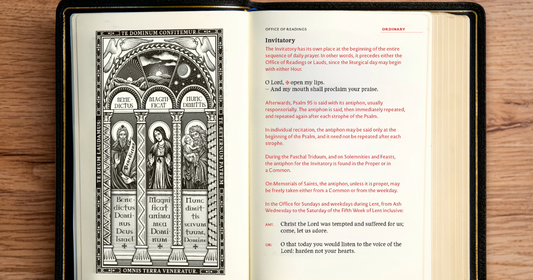 TE DOMINUM CONFITEMUR
BENE
DICTUS
MAGNI
FICAT
NUNC
DIMITTIS
Bene
dictus
Domi-
nus
Deus
Israel
Magni
ficat
anima
mea
Domi-
num
Nunc
dimit-
tis
servum
tuum,
Domine
OMNIS TERRA VENERATUR
OFFICE OF READINGS
ORDINARY
Invitatory
The Invitatory has its own place at the beginning of the entire
sequence of daily prayer. In other words, it precedes either the
Office of Readings or Lauds, since the liturgical day may begin
with either Hour.
O Lord, ✠ open my lips.
– And my mouth shall proclaim your praise.
Afterwards, Psalm 95 is said with its antiphon, usually
responsorially. The antiphon is said, then immediately repeated,
and repeated again after each strophe of the Psalm.
In individual recitation, the antiphon may be said only at the
beginning of the Psalm, and it need not be repeated after each
strophe.
During the Paschal Triduum, and on Solemnities and Feasts,
the antiphon for the Invitatory is found in the Proper or in
a Common.
On Memorials of Saints, the antiphon, unless it is proper, may
be freely taken either from a Common or from the weekday.
In the Office for Sundays and weekdays during Lent, from Ash
Wednesday to the Saturday of the Fifth Week of Lent inclusive:
ANT. Christ the Lord was tempted and suffered for us;
come, let us adore.
OR: O that today you would listen to the voice of the
Lord: harden not your hearts.